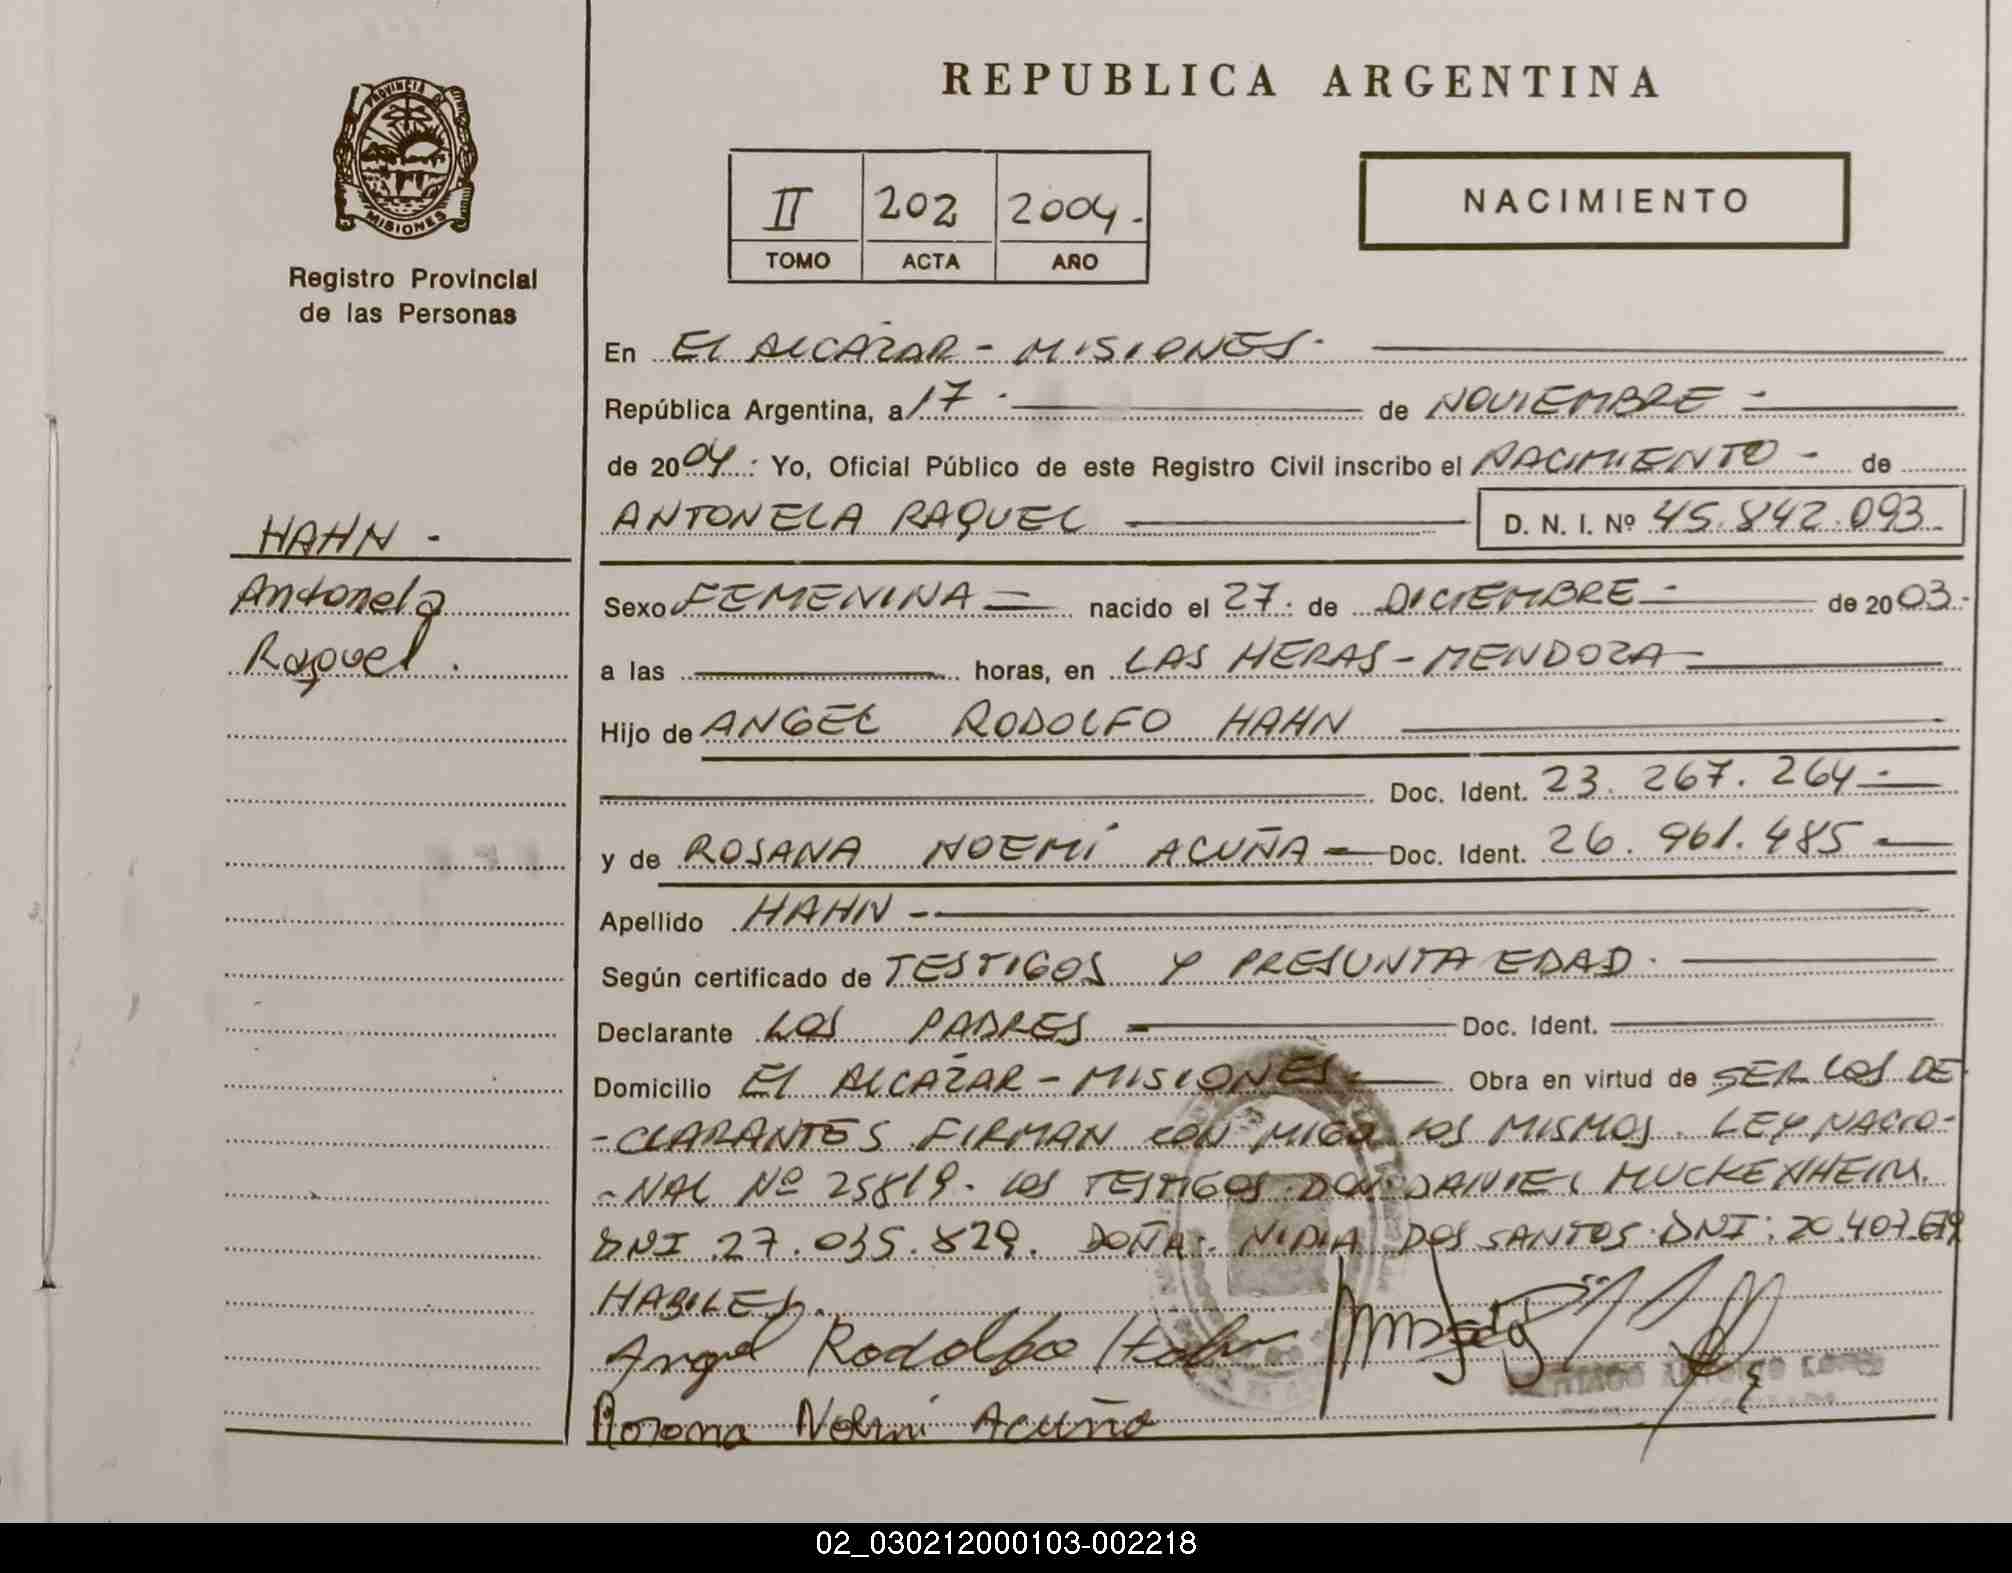 PROVINCIA DE
MISIONES
Registro Provincial
de las Personas
REPUBLICA ARGENTINA
II 202 2004.-
TOMO ACTA AÑO
NACIMIENTO
En EL ALCÁZAR - MISIONES.-
República Argentina, a 17.- de NOVIEMBRE.-
de 2004.: Yo, Oficial Público de este Registro Civil inscribo el NACIMIENTO.- de
ANTONELA RAQUEL D. N. I. Nº 45.842.093
HAHN -
Antonela
Raquel.
Sexo FEMENINA nacido el 27. de DICIEMBRE.- de 2003.-
a las horas, en LAS HERAS - MENDOZA
Hijo de ANGEL RODOLFO HAHN
Doc. Ident. 23.267.264.-
y de ROSANA NOEMÍ ACUÑA Doc. Ident. 26.961.485
Apellido HAHN -
Según certificado de TESTIGOS Y PRESUNTA EDAD.
Declarante LOS PADRES Doc. Ident.
Domicilio EL ALCÁZAR - MISIONES.- Obra en virtud de SER LOS DE-
-CLARANTES FIRMAN CON MIGO LOS MISMOS. LEY NACIO-
-NAL Nº 25819. LOS TESTIGOS DON DANIEL MUCKENHEIM.
DNI 27.035.829. DOÑA: NIDIA DOS SANTOS. DNI: 20.407.679
HABILES.
Angel Rodolfo Hahn
Rosana Noemi Acuña
02_030212000103-002218